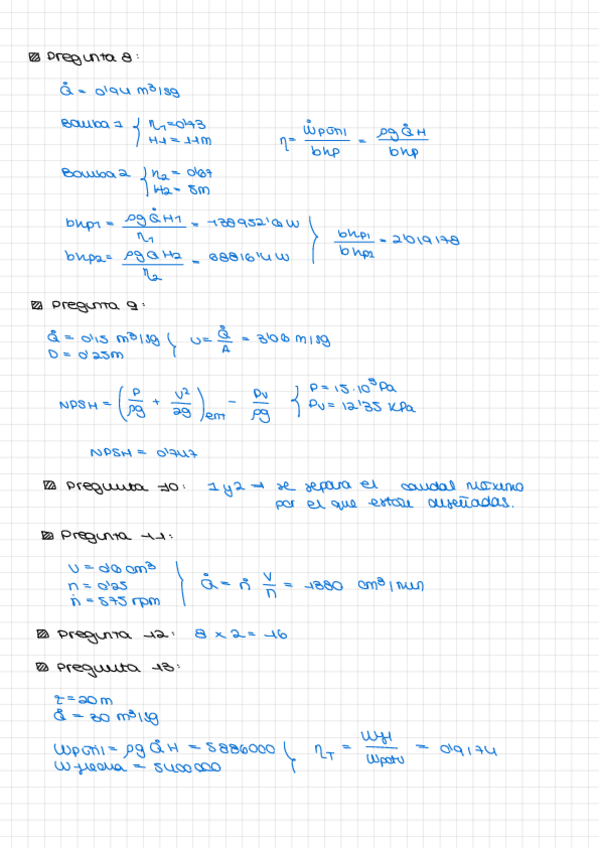 Pregunta 8:
Q̇ = 0'94 m³/sg
Bomba 1 { η₁=0'73 H1 = 11m
η = Ẇpotil / bhp = ρgQ̇H / bhp
Bomba 2 { η₂ = 0'67 H2 = 5m
bhp1 = ρgQ̇H1 / η₁ = 138952'6 W
bhp2 = ρgQH2 / η₂ = 68816'4 W
bhp1 / bhp2 = 2'019178
Pregunta 9:
Q̇ = 0'15 m³/sg
D = 0'25m
v = Q̇ / A = 3'06 m/sg
NPSH = (P/ρg + v²/2g)ent − Pv/ρg { P = 15·10³Pa Pv = 12'35 KPa
NPSH = 0'747
Pregunta 10: 1 y 2 → se separa el caudal máximo
por el que están diseñadas.
Pregunta 11:
V = 0'6 cm³
n = 0'25
ṅ = 575 rpm
Q̇ = ṅ V/n = 1380 cm³/min
Pregunta 12: 8 x 2 = 16
Pregunta 13:
z = 20m
Q̇ = 30 m³/sg
Wpotil = ρgQ̇H = 5886000
W flecha = 5400000
ηT = Wfl / Wpotil = 0'9174